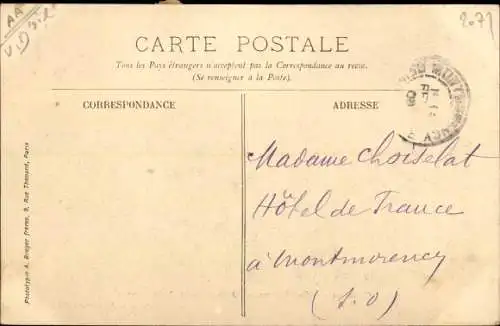 AA
2071
CARTE POSTALE
Tous les Pays étrangers n'acceptent pas la Correspondance au recto.
(Se renseigner à la Poste).
CORRESPONDANCE
ADRESSE
Madame Choiselat
Hôtel de France
à Montmorency
(S.O)
Phototypie A. Breger Frères, 9, Rue Thénard, Paris